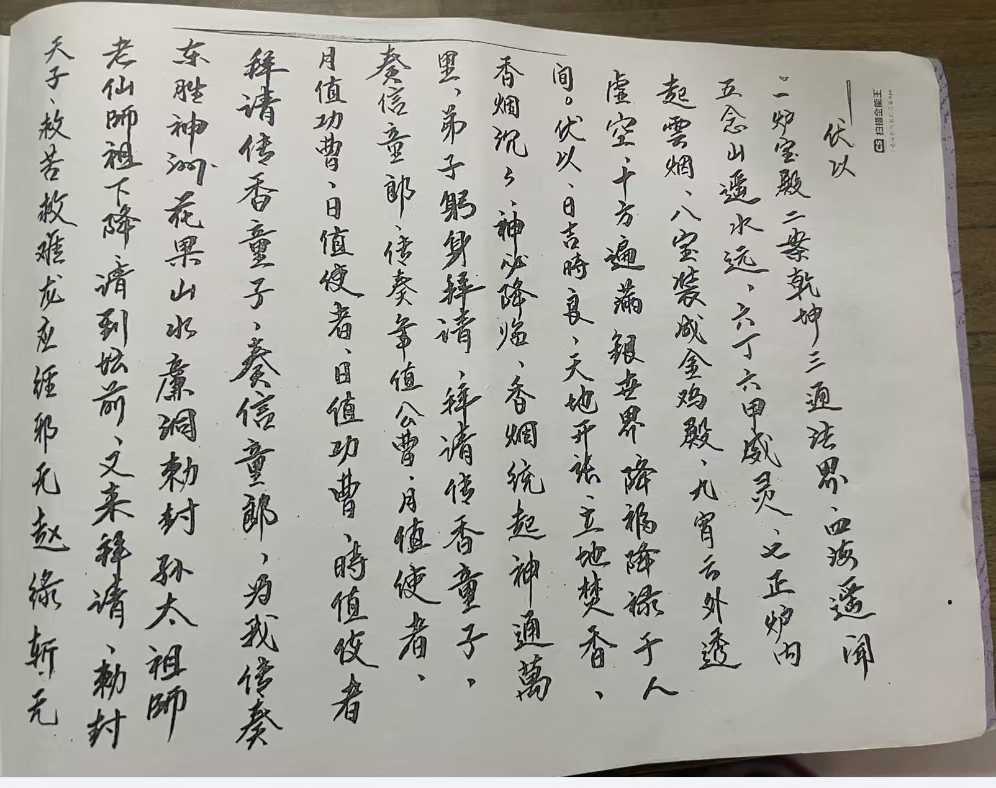 伏以
一炉宝殿二案乾坤三通法界、四海遥闻
五念山遥水远、六丁六甲威灵、七正炉内
起雲烟、八宝装成金鸡殿、九宵云外透
虚空、十方遍满银世界降福降禄于人
间。伏以、日吉時良、天地开张、立地焚香、
香烟沉々、神必降临、香烟统起神通萬
里、弟子躬身拜请、拜请传香童子、
奏信童郎、传奏年值公曹、月值使者、
月值功曹、日值使者、日值功曹、時值使者
拜请传香童子、奏信童郎、为我传奏
东胜神洲花果山水廉洞勅封孙太祖師
老仙師祖下降请到坛前、又来拜请、勅封
天子、救苦救难龙应经邪无赵缘斩无
扫描全能王